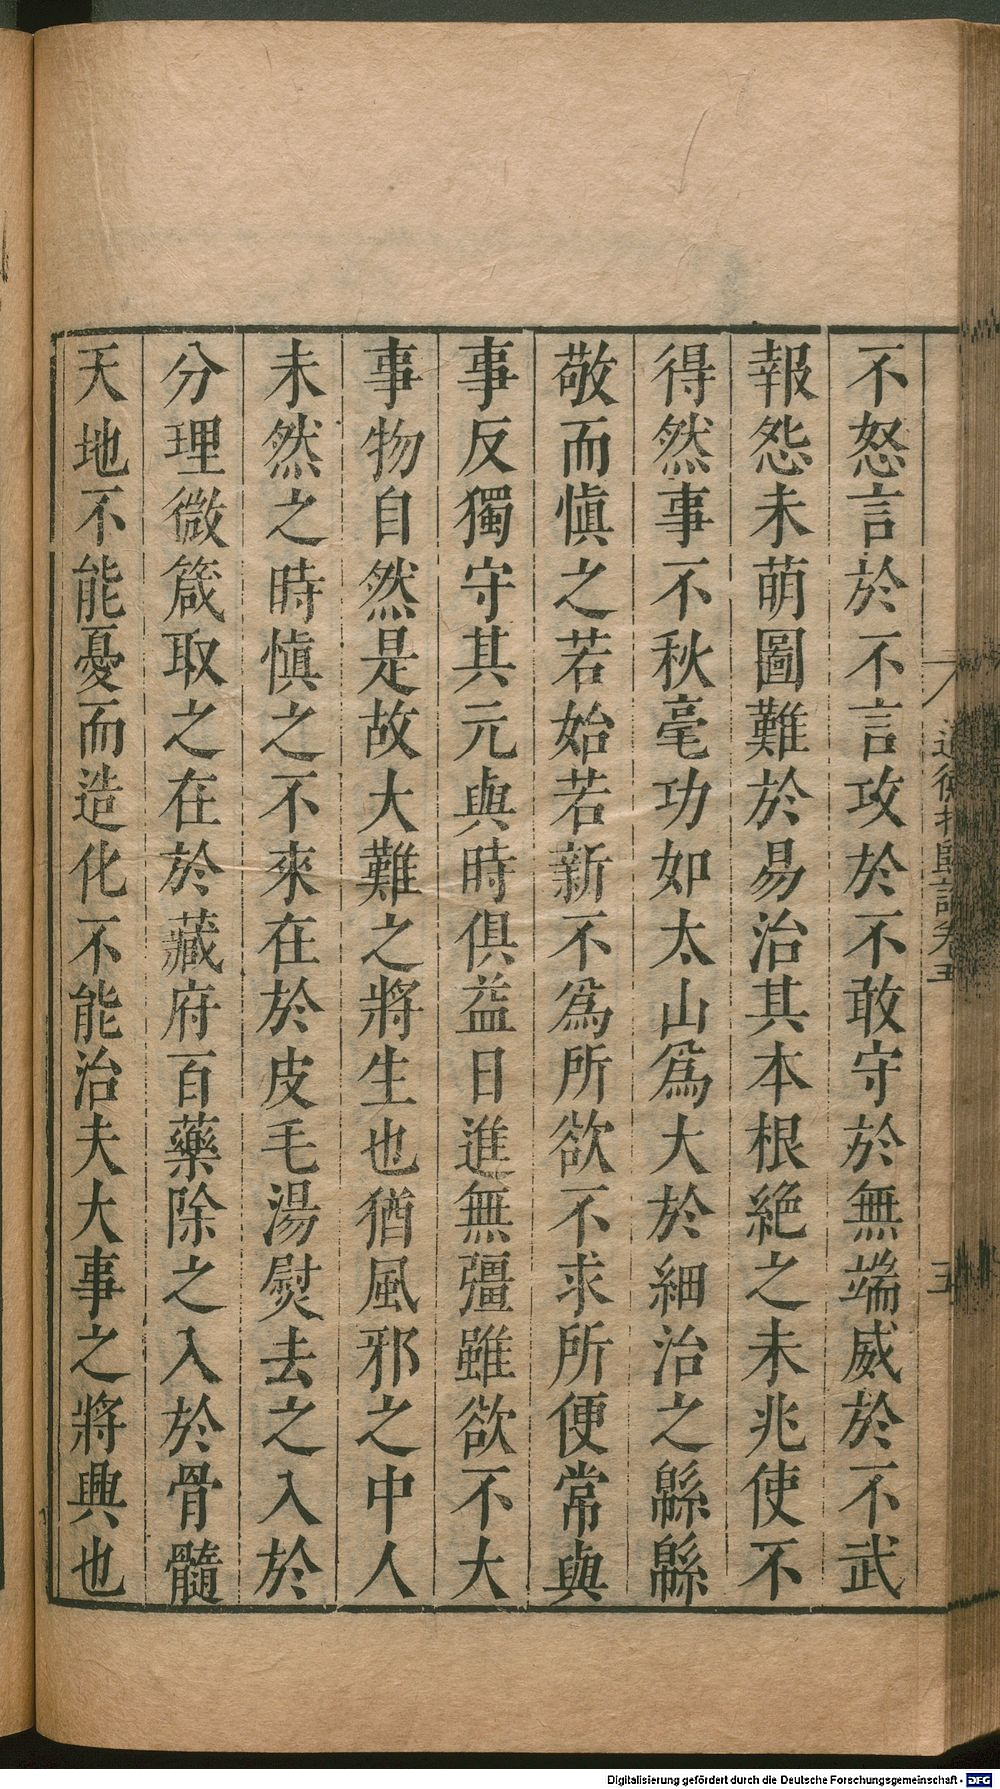 不怒言於不言攻於不敢守於無端威於不武
報怨未萌圖難於易治其本根絶之未兆使不
得然事不秋毫功如太山爲大於細治之緜緜
敬而愼之若始若新不爲所欲不求所便常與
事反獨守其元與時俱益日進無彊雖欲不大
事物自然是故大難之將生也猶風邪之中人
未然之時愼之不來在於皮毛湯熨去之入於
分理微箴取之在於藏府百藥除之入於骨髓
天地不能憂而造化不能治夫大事之將興也
道德指歸論卷五
五
Digitalisierung gefördert durch die Deutsche Forschungsgemeinschaft - DFG